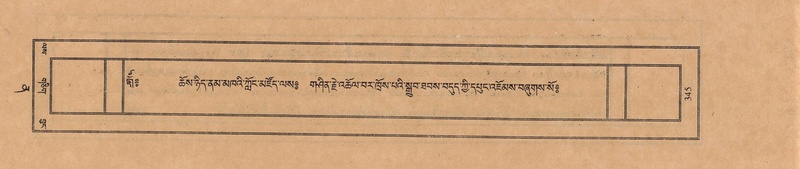 ༄༅༔ ཆོས་ཉིད་ནམ་མཁའི་ཀློང་མཛོད་ལས༔ གཤིན་རྗེ་འཆོལ་བར་ཁྲོས་པའི་སྒྲུབ་ཐབས་བདུད་ཀྱི་དཔུང་འཇོམས་བཞུགས་སོ༔
345